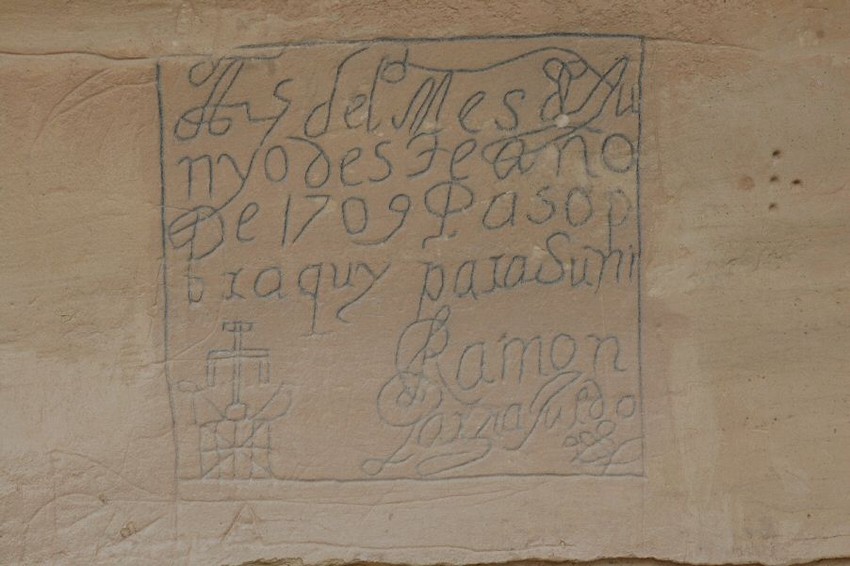 A 25 del Mes de Ju
nyo deste año
De 1709 Paso p
or aquy para Suñi
Ramon
Garzia Jurdo